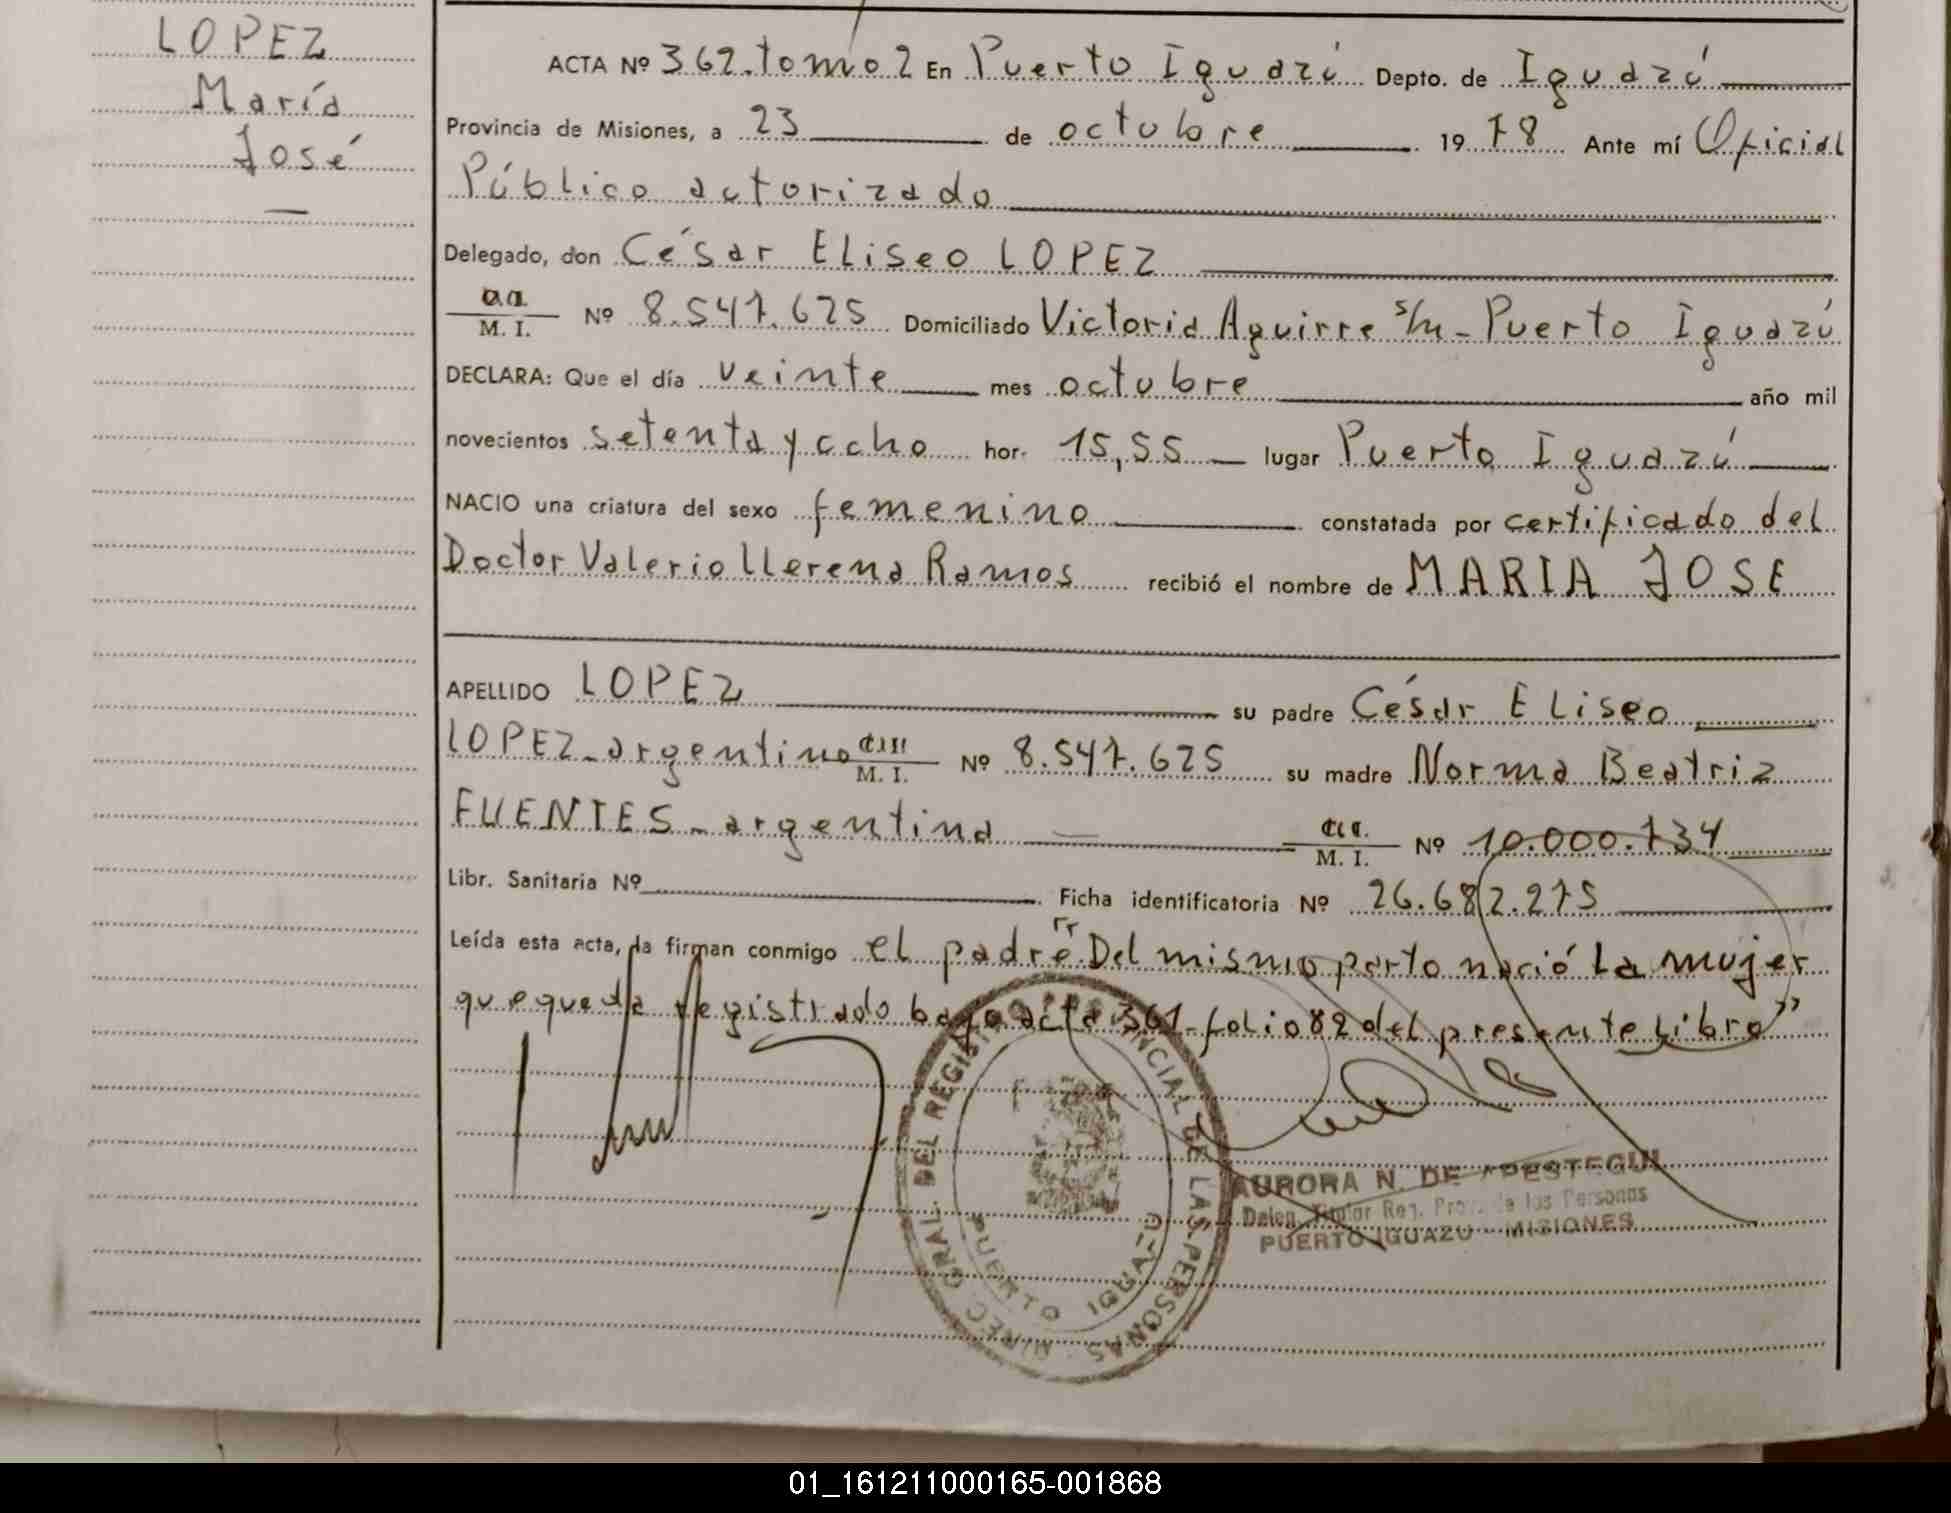 LOPEZ
María
José
—
ACTA Nº 362.tomo 2 En Puerto Iguazú Depto. de Iguazú
Provincia de Misiones, a 23 de octubre 1978 Ante mí Oficial
Público autorizado
Delegado, don César Eliseo LOPEZ
M. I. Nº 8.547.625 Domiciliado Victoria Aguirre s/n - Puerto Iguazú
DECLARA: Que el día veinte mes octubre año mil
novecientos setenta y ocho hor. 15,55 lugar Puerto Iguazú
NACIO una criatura del sexo femenino constatada por certificado del
Doctor Valerio Llerena Ramos recibió el nombre de MARIA JOSE
APELLIDO LOPEZ su padre César Eliseo
LOPEZ - argentino M. I. Nº 8.547.625 su madre Norma Beatriz
FUENTES - argentina M. I. Nº 10.000.734
Libr. Sanitaria Nº Ficha identificatoria Nº 26.682.275
Leída esta acta, la firman conmigo el padre "Del mismo parto nació la mujer
que queda registrado bajo acta 361 - folio 82 del presente Libro"
DIREC. GRAL. DEL REGISTRO PROVINCIAL DE LAS PERSONAS
PUERTO IGUAZU
AURORA N. DE APESTEGUI
Deleg. Titular Reg. Prov. de las Personas
PUERTO IGUAZU - MISIONES
01_161211000165-001868